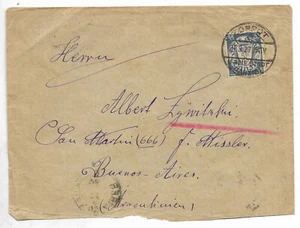 ZOPPOT
Herrn
Albert Zywitzki
San Martin (666) f. Missler.
Buenos-Aires.
(Argentinien)